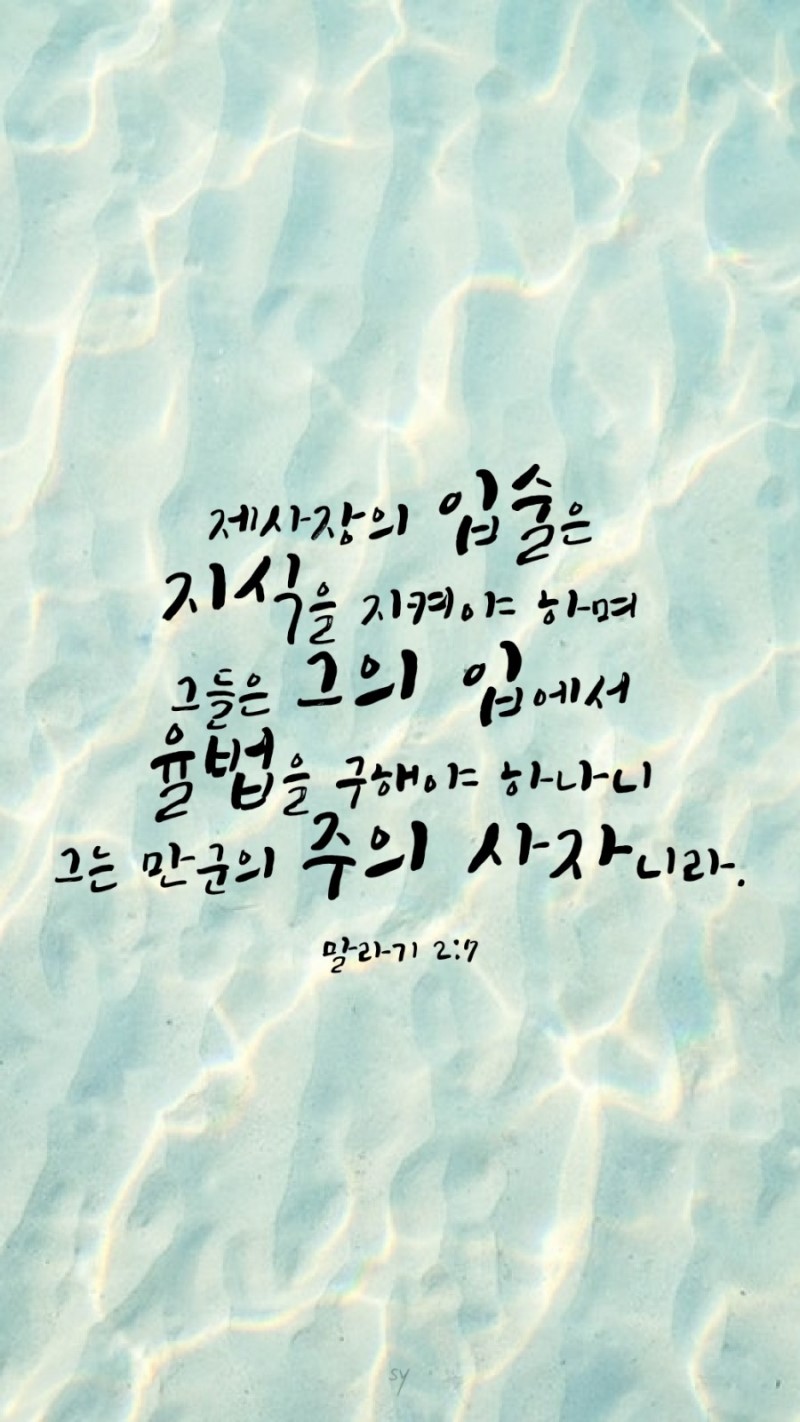 제사장의 입술은
지식을 지켜야 하며
그들은 그의 입에서
율법을 구해야 하나니
그는 만군의 주의 사자니라.
말라기 2:7
sy